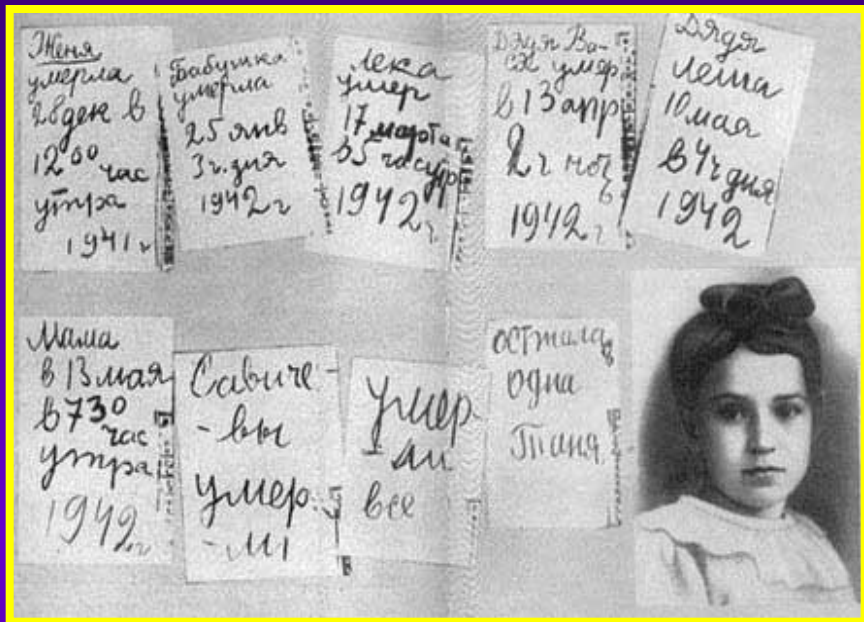 Женя
умерла
28 дек в
12 00 час
утра
1941 г
Бабушка
умерла
25 янв
3 ч. дня
1942 г
Лека
умер
17 марта
в 5 час утр
1942 г
Дядя Ва-
ся умер
в 13 апр
2 ч ноч
ь
1942 г
Дядя
Леша
10 мая
в 4 ч дня
1942
Мама
в 13 мая
в 730
час
утра
1942 г
Савиче-
-вы
умер
-ли
умер
-ли
все
осталась
одна
Таня